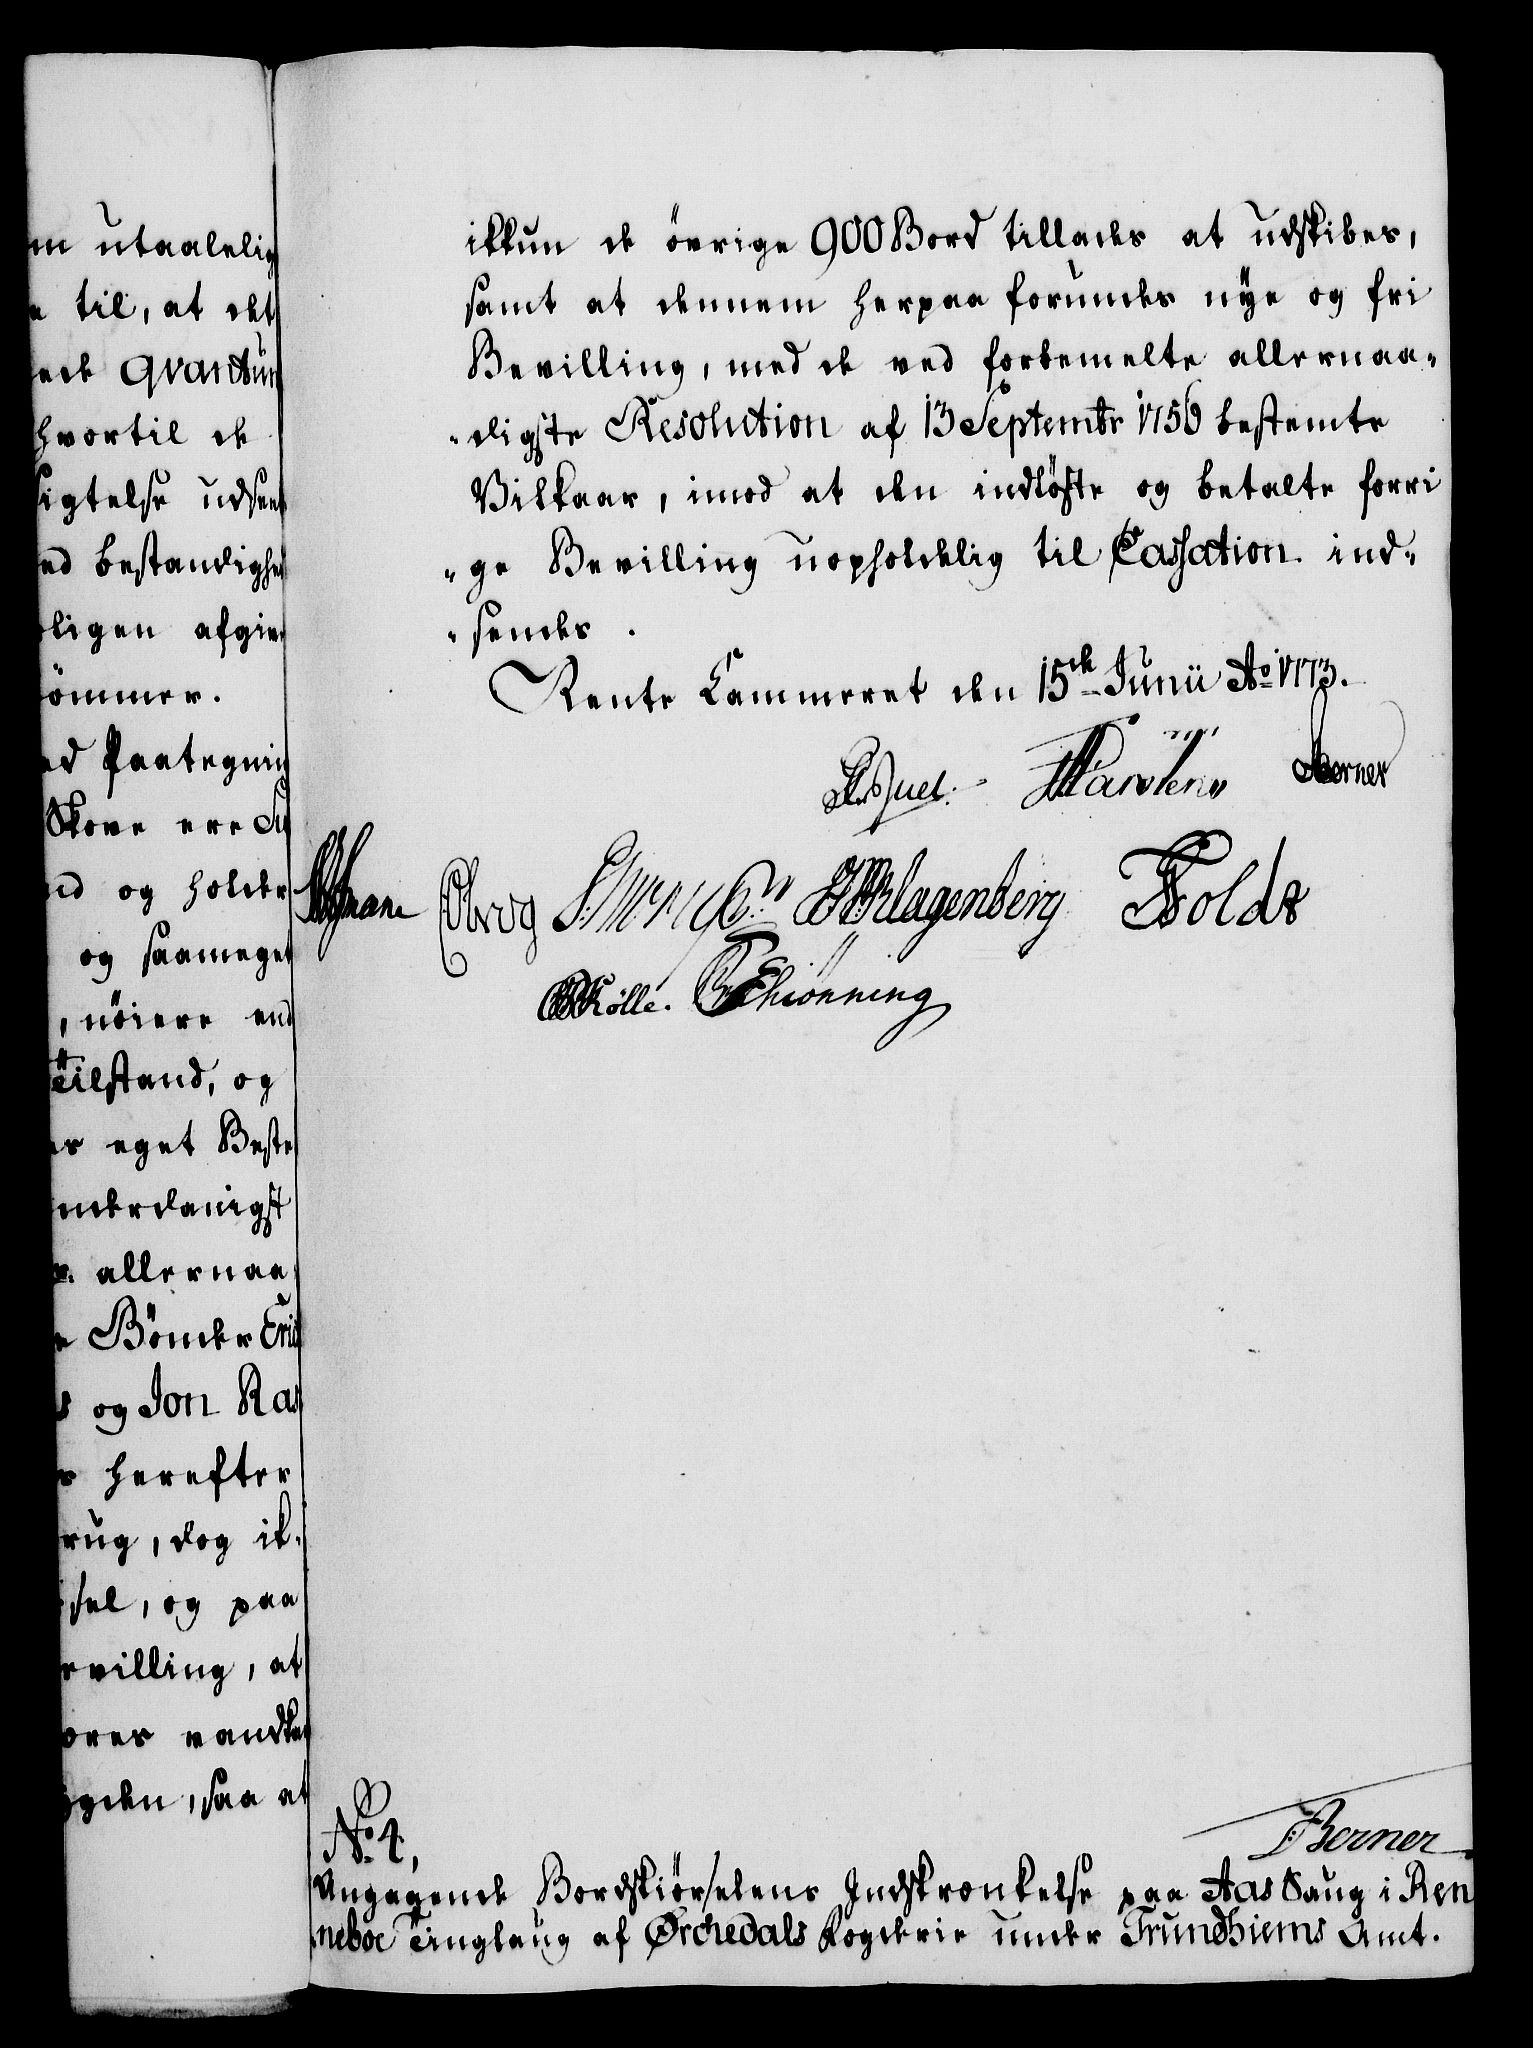 m utaalelig
e til, at det
eede Qvantum
hvortil de
sigtelse udsee
ed bestandighed
oligen afgive
ömmer.
ed Paategning
Skove ere
ed og holder
og saameget
, nöiere end
Tilstand, og
er eget Beste
underdanigst
allernaa
e Bönder Eric
s og Jon Ras
r herefter
rug, dog ik-
sel, og paa
evilling, at
ores vandka
gden, saa at
ikkun de övrige 900 Bord tillades at udskibes,
samt at dennem herpaa forundes nye og fri
Bevilling, med de ved forbemelte allernaa-
-digste Resolution af 13 Septembr 1756 bestemte
Vilkaar, imod at den indlöste og betalte forri
-ge Bevilling uopholdelig til Cassation ind-
-sendes.
Rente Cammeret den 15de Junii Ao 1773.
Juel. Carstens Berner
Obrog Klagenberg Foldt
Rölle. Schiönning
Berner
No. 4,
Angagende Bordskiörselens Indskrænkelse paa Aas Saug i Ren
neboe Tinglaug af Ørchedals Fogderie under Trundhiems Amt.